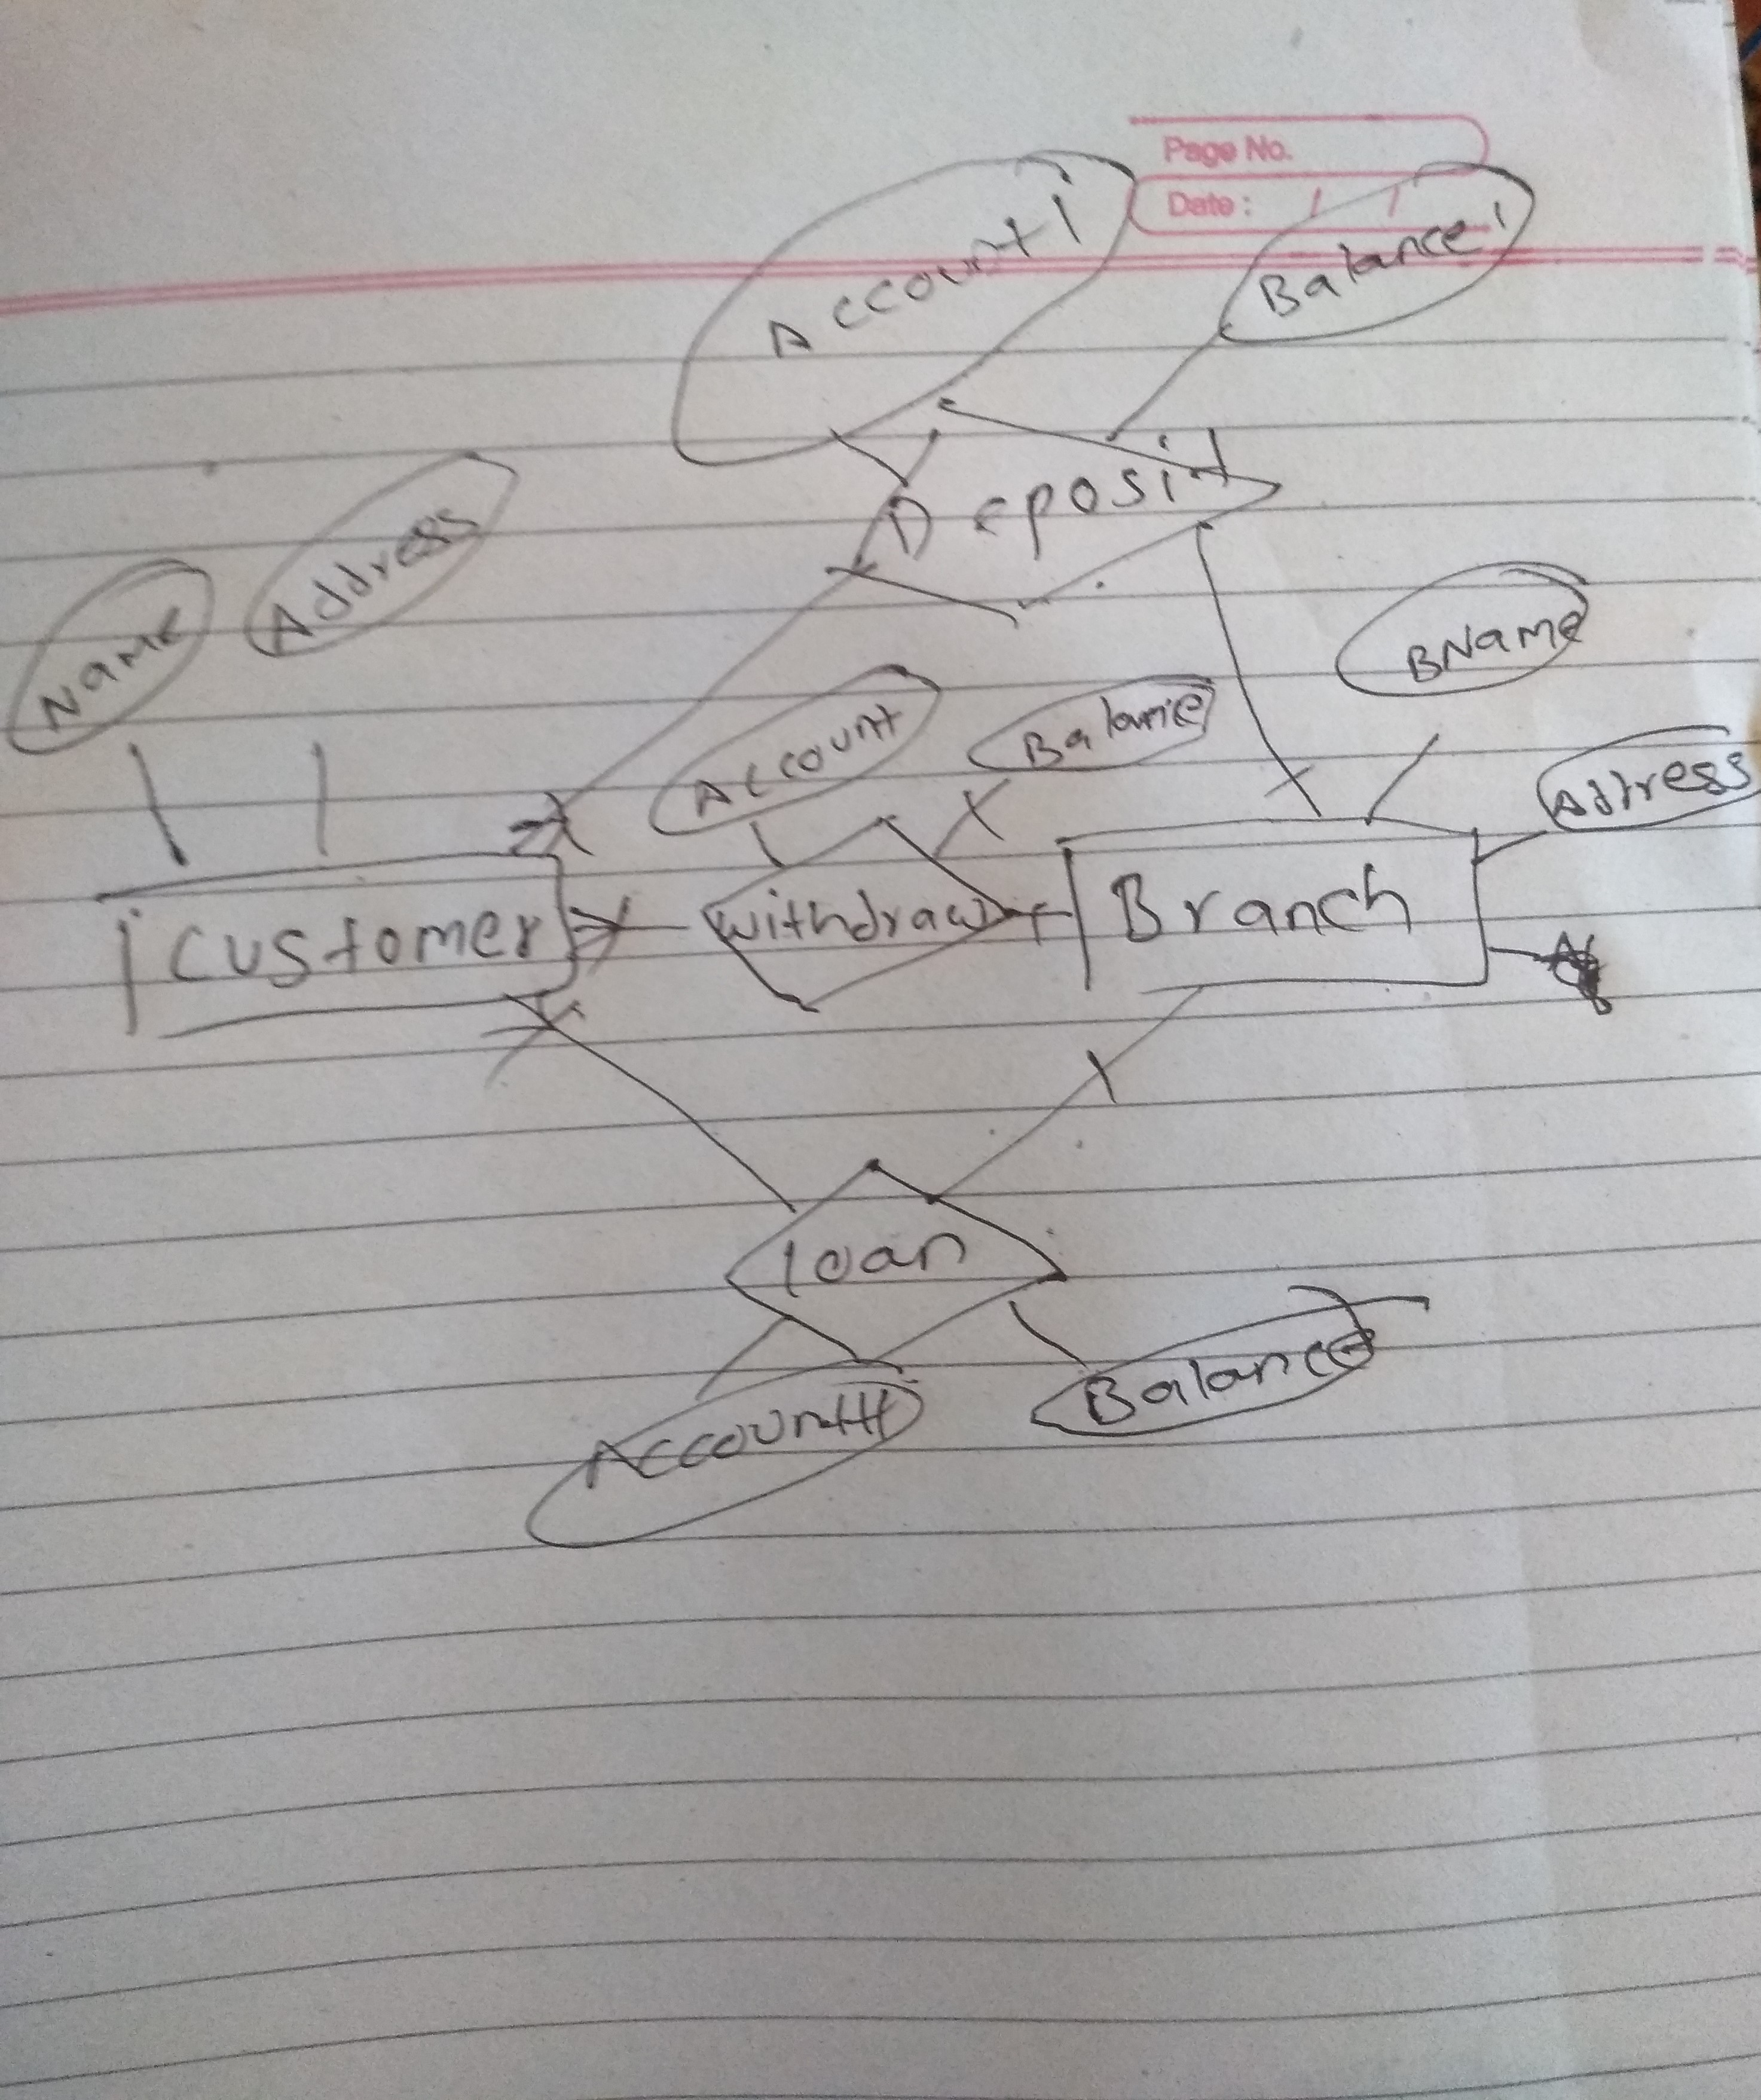 Page No.
Date: / /
Account 1
Balance 1
Deposit
Name
Address
BName
Account
Balance
Address
Customer
Withdraw
Branch
loan
Balance